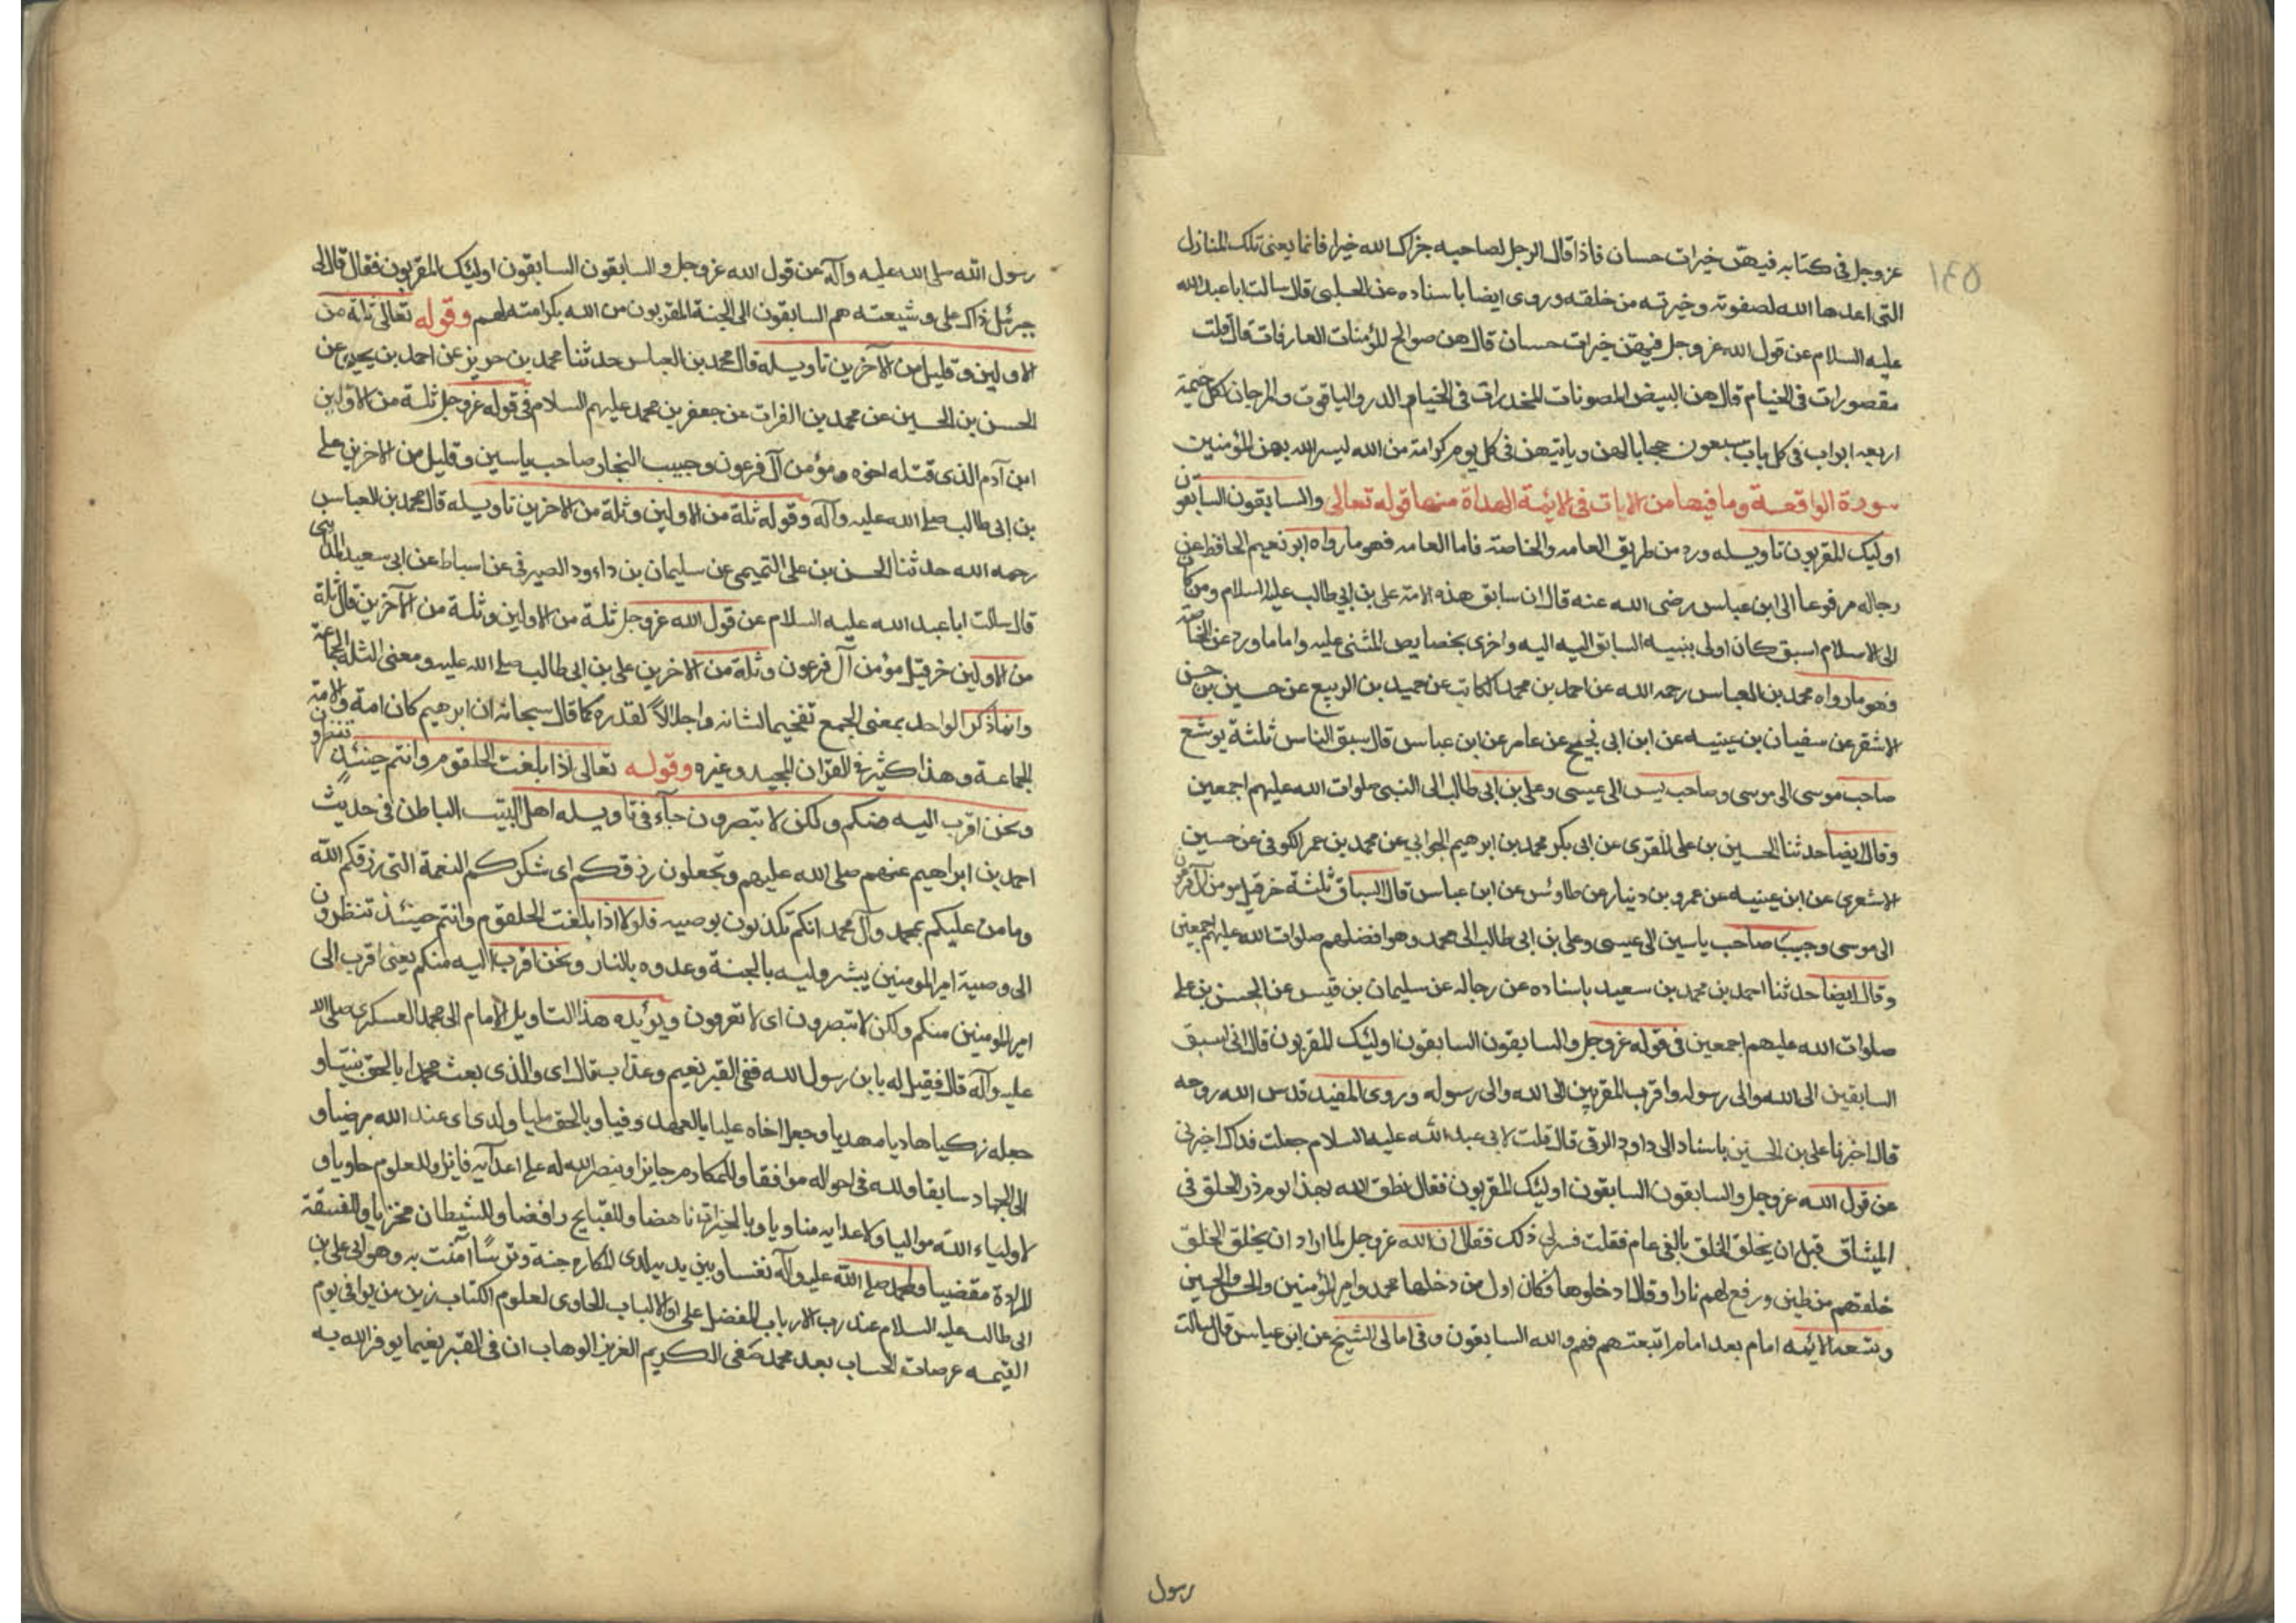 ١٤٥
عز وجل في كتابه فيهن خيرات حسان فاذا قال الرجل لصاحبه جزاك الله خيرا فانما يعني تلك المنازل
التي اعدها الله لصفوته وخيرته من خلقه وروى ايضا باسناده عن الحلبي قال سالت ابا عبد الله
عليه السلام عن قول الله عز وجل فيهن خيرات حسان قال هن صوالح المؤمنات العارفات قال قلت
مقصورات في الخيام قال هن البيض المصونات المخدرات في الخيام الدر والياقوت والمرجان لكل خيمة
اربعه ابواب في كل باب سبعون حجابا لهن وياتيهن في كل يوم كرامة من الله ليسر الله بهن المؤمنين
سورة الواقعة وما فيها من الايات في الائمة الهداة منها قوله تعالى والسابقون السابقون
اوليك المقربون تاويله ورد من طريق العامه والخاصة فاما العامه فهو ما رواه ابو نعيم الحافظ عن
رجاله مرفوعا الى ابن عباس رضي الله عنه قال ان سابق هذه الامة علي بن ابي طالب عليه السلام ومن كان
الى الاسلام اسبق كان اولى بنبيه السابق اليه اليه واخرى بخصايص المثنى عليه واما ما ورد عن الخاصة
فهو ما رواه محمد بن العباس رحمه الله عن احمد بن محمد الكاتب عن حميد بن الربيع عن حسين بن حسن
الاشقر عن سفيان بن عيينه عن ابن ابي نجيح عن عامر عن ابن عباس قال سبق الناس ثلثة يوشع
صاحب موسى الى موسى وصاحب يس الى عيسى وعلي بن ابي طالب الى النبي صلوات الله عليهم اجمعين
وقال ايضا حدثنا الحسين بن علي المقري عن ابي بكر محمد بن ابرهيم الجوابي عن محمد بن عمر الكوفي عن حسين
الاشعري عن ابن عيينه عن عمرو بن دينار عن طاوئس عن ابن عباس قال السباق ثلثة خرقيل مومن آل فرعون
الى موسى وحبيب صاحب ياسين الى عيسى وعلي بن ابي طالب الى محمد وهو افضلهم صلوات الله عليهم اجمعين
وقال ايضا حدثنا احمد بن محمد بن سعيد باسناده عن رجاله عن سليمان بن قيس عن الحسن بن علي
صلوات الله عليهم اجمعين في قوله عز وجل والسابقون السابقون اولئك المقربون قال اني اسبق
السابقين الى الله والى رسوله واقرب المقربين الى الله والى رسوله وروى المفيد قدس الله روحه
قال اخبرنا علي بن الحسين باسناد الى داود الرقي قال قلت لابي عبد الله عليه السلام جعلت فداك اخبرني
عن قول الله عز وجل والسابقون السابقون اولئك المقربون فقال نطق الله بهذا يوم ذر الخلق في
الميثاق قبل ان يخلق الخلق بالفي عام فقلت فسر لي ذلك فقال ان الله عز وجل لما اراد ان يخلق الخلق
خلقهم من طين ورفع لهم نارا وقال ادخلوها فكان اول من دخلها محمد وامير المؤمنين والحسن والحسين
وتسعه الائمه امام بعد امام اتبعتهم فهم والله السابقون وفي امالي الشيخ عن ابن عباس قال سالت
رسول
رسول الله صلى الله عليه وآله عن قول الله عز وجل والسابقون السابقون اولئك المقربون فقال قال لي
جبرئيل ذاك علي وشيعته هم السابقون الى الجنة المقربون من الله بكرامته لهم وقوله تعالى ثلة من
الاولين وقليل من الآخرين تاويله قال محمد بن العباس حدثنا محمد بن حويز عن احمد بن يحيى عن
الحسن بن الحسين عن محمد بن الفرات عن جعفر بن محمد عليهم السلام في قوله عز وجل ثلة من الاولين
ابن آدم الذي قتله اخوه ومؤمن آل فرعون وحبيب النجار صاحب ياسين وقليل من الاخرين علي
بن ابي طالب صلى الله عليه وآله وقوله ثلة من الاولين وثلة من الاخرين تاويله قال محمد بن العباس
رحمه الله حدثنا الحسن بن علي التميمي عن سليمان بن داود الصيرفي عن اسباط عن ابي سعيد المدائني
قال سالت ابا عبد الله عليه السلام عن قول الله عز وجل ثلة من الاولين وثلة من الآخرين قال ثلة
من الاولين خرقيل مؤمن آل فرعون وثلة من الاخرين علي بن ابي طالب صلى الله عليه ومعنى الثلة الجماعة
وانما ذكر الواحد بمعنى الجمع تفخيما لشانه واجلالاً لقدره كما قال سبحانه ان ابرهيم كان امة والامة
الجماعة وهذا كثير في القرآن المجيد وغيره وقوله تعالى اذا بلغت الحلقوم وانتم حينئذٍ تنظرون
ونحن اقرب اليه منكم ولكن لا تبصرون جآء في تاويله اهل البيت الباطن في حديث
احمد بن ابراهيم عنهم صلى الله عليهم وتجعلون رزقكم اى شكركم النعمة التي رزقكم الله
وما من عليكم بمحمد وآل محمد انكم تكذبون بوصيه فلولا اذا بلغت الحلقوم وانتم حينئذ تنظرون
الى وصية امير المومنين يبشر وليه بالجنة وعدوه بالنار ونحن اقرب اليه منكم يعني اقرب الى
امير المومنين منكم ولكن لا تبصرون اى لا تعرفون ويؤيده هذا التاويل الامام الى محمد العسكري صلى الله
عليه وآله قال فقيل له يا بن رسول الله ففي القبر نعيم وعذاب قال اى والذى بعث محمدا بالحق نبيا و
جعله زكيا هاديا مهديا وجعل اخاه عليا بالعهد وفيا وبالحق مليا ولدى عند الله مرضيا و
الى الجهاد سابقا ولله في احواله موافقا وللمكارم جايزا وبنصر الله له على اعدآيه فايزا وللعلوم حاويا و
لاولياء الله مواليا ولاعدايه مناويا وبالخيرات ناهضا وللقبايح رافضا وللشيطان مخزيا وللفسقة
المردة مقضيا ولمحمد صلى الله عليه وآله نفسا وبين يديه لدى المكاره جنة وترسًا آمنت به وهو ابي علي بن
ابي طالب عليه السلام عند رب الارباب المفضل على اولى الالباب الحاوى لعلوم الكتاب زين من يوافي يوم
القيمه عرصات الحساب بعد محمد صفي الكريم العزيز الوهاب ان في القبر نعيما يوفر الله به